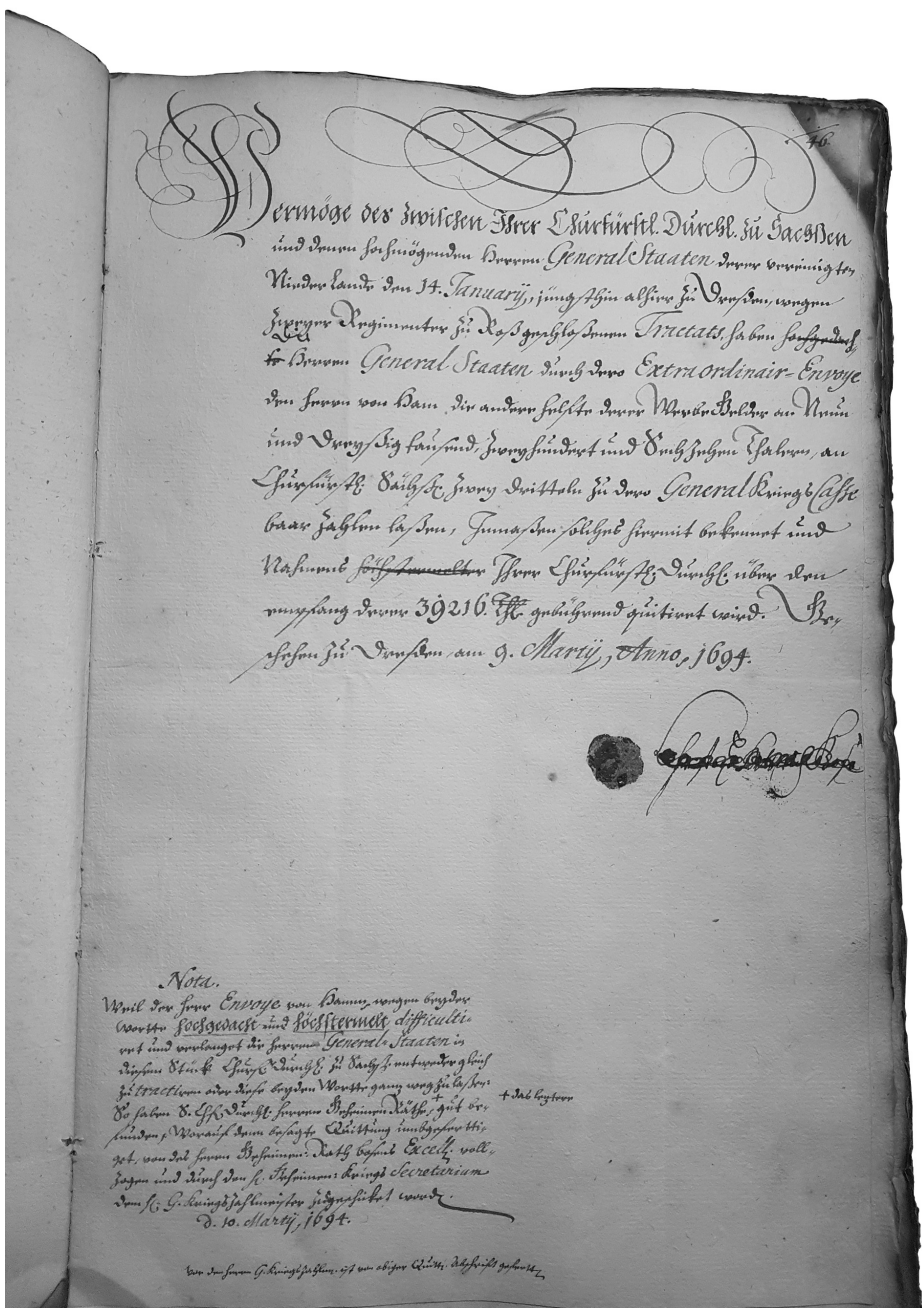 46.
Vermöge des zwischen Ihrer Churfürstl. Durchl. zu Sachßen
und denen hochmögenden Herren General Staaten derer vereinigten
Niederlande den 14. January, jüngsthin alhier zu Dreßden, wegen
zweyer Regimenter zu Roß geschloßenen Tractats, haben hochgedach-
te Herren General Staaten durch dero Extraordinair-Envoyé
den Herrn von Ham, die andere helffte derer Werbe Gelder an Neun
und Dreyßig tausend, zweyhundert und Sechzehen Thalern, an
Churfürstl. Sächß. zwey dritteln zu dero General Kriegs Cassa
baar zahlen laßen, Inmaßen solches hiermit bekennet und
Nahmens höchstermelter Ihrer Churfürstl. Durchl. über den
empfang derer 39216. Thl. gebührend quitiret wird. Ge-
schehen zu Dreßden, am 9. Martij, Anno, 1694.
Nota.
Weil der Herr Envoye von Hamm, wegen beyder
wortte hochgedacht und höchstermelt difficulti-
ret und verlanget die Herren General-Staaten in
diesem Stück Churf. Durchl. zu Sachß. entweder gleich
zu tractiren oder diese beyden Wortte gantz weg zu laßen
So haben S. Chf. Durchl. Herren Geheimen Räthe + gut be- + das leztere
funden, Worauf denn besagte Quittung umbgefertti-
get, von des Herrn Geheimen Rath Bosens Excell. voll-
zogen und durch den H. Geheimen Kriegs Secretarium
dem H. G. Kriegszahlmeister zugeschicket word.
d. 10. Martij, 1694.
Vor den Herrn G. Kriegszahlm. ist von obiger Quitt. Abschrifft gefertt.